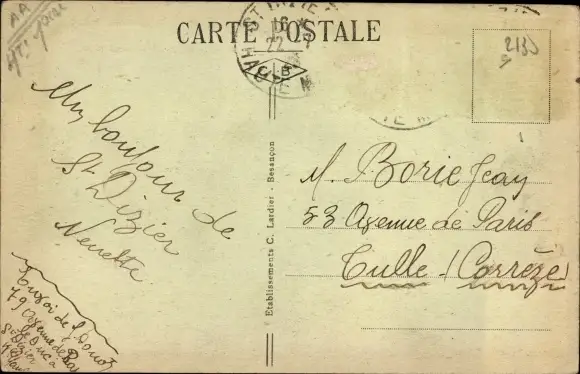 AA
Hte Marne
CARTE POSTALE
ST DIZIER
16
22
HAUTE M
C.L.B
2130
Un bonjour de
St Dizier
Nenette
Envoi de
79 Avenue de Bar
le Duc à
St Dizier
Etablissements C. Lardier - Besançon
M. Borie Jean
53 Avenue de Paris
Tulle (Corrèze)